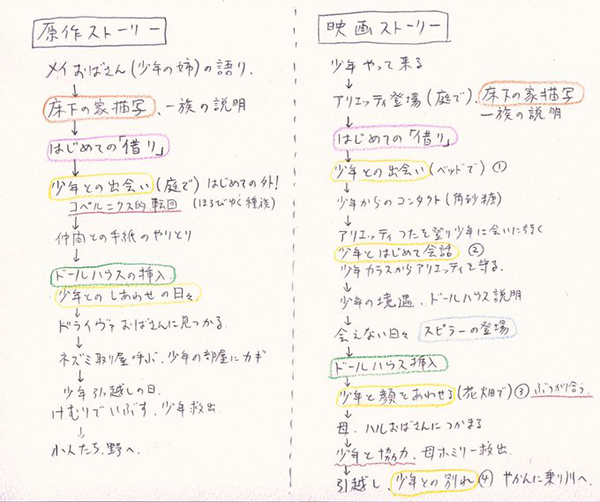 原作ストーリー
メイおばさん(少年の姉)の語り.
↓
床下の家描写、一族の説明
↓
はじめての「借り」
↓
少年との出会い(庭で)はじめての外!
コペルニクス的転回(ほろびゆく種族)
↓
仲間との手紙のやりとり
↓
ドールハウスの挿入
少年とのしあわせの日々
↓
ドライヴァおばさんに見つかる.
↓
ネズミ取り屋呼ぶ、少年の部屋にカギ
↓
少年引っ越しの日.
けむりでいぶす、少年救出
↓
小人たち、野へ.
映画ストーリー
少年やって来る
↓
アリエッティ登場(庭で)、床下の家描写
一族の説明
↓
はじめての「借り」
↓
少年との出会い(ベッドで)①
↓
少年からのコンタクト(角砂糖)
↓
アリエッティつたを登り少年に会いに行く
少年とはじめて会話 ②
少年カラスからアリエッティを守る.
↓
少年の境遇、ドールハウス説明
↓
会えない日々 スピラーの登場
↓
ドールハウス挿入
↓
少年と顔をあわせる(花畑で)③ ぶつかり合う
↓
母、ハルおばさんにつかまる
↓
少年と協力、母ホミリー救出
↓
引越し、少年との別れ④ やかんに乗り川へ.